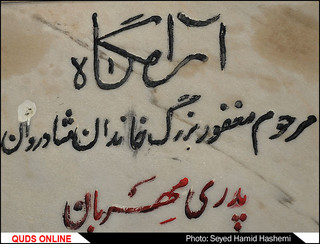 آرامگاه
مرحوم مغفور بزرگ خاندان شادروان
پدری مهربان
QUDS ONLINE
Photo: Seyed Hamid Hashemi